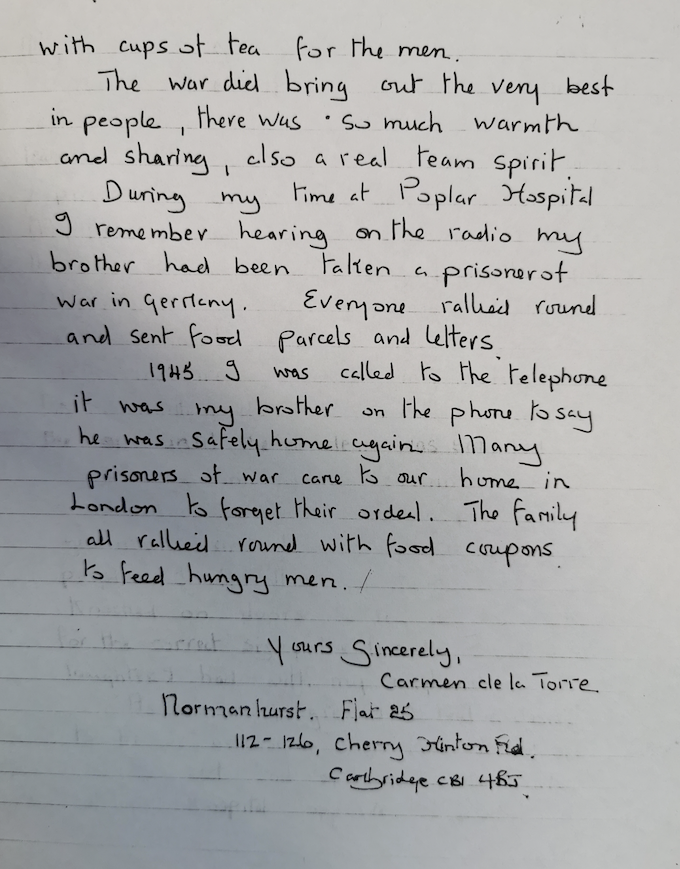 with cups of tea for the men.
The war did bring out the very best
in people, there was so much warmth
and sharing, also a real team spirit.
During my time at Poplar Hospital
I remember hearing on the radio my
brother had been taken a prisoner of
war in Germany. Everyone rallied round
and sent food parcels and letters.
1945 I was called to the telephone
it was my brother on the phone to say
he was safely home again. Many
prisoners of war came to our home in
London to forget their ordeal. The family
all rallied round with food coupons
to feed hungry men.
Yours Sincerely,
Carmen de la Torre.
Normanhurst. Flat 25
112-126, Cherry Hinton Rd.
Cambridge CB1 4BJ.